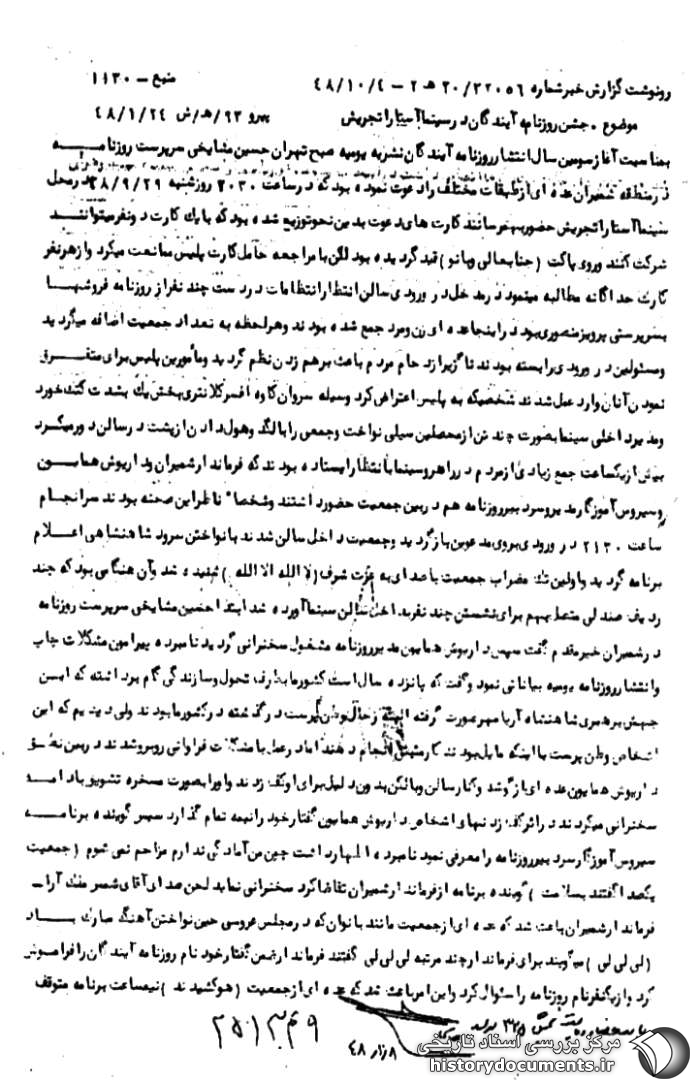 رونوشت گزارش خبر شماره ۲۰/۳۲۰۵۶ هـ ۲ – ۴۸/۱۰/۴ منبع – ۱۱۳۰
موضوع . جشن روزنامه آیندگان در سینما آستارا تجریش پیرو ۹۳/هـ/ش ۴۸/۱/۲۴
بمناسبت آغاز سومین سال انتشار روزنامه آیندگان نشریه یومیه صبح تهران حسین مشایخی سرپرست روزنامه
در منطقه شمیران عده ای از طبقات مختلف را دعوت نموده بود که در ساعت ۲۰۳۰ روز شنبه ۴۸/۹/۲۹ در محل
سینما آستارا تجریش حضور بهم رسانند کارت های دعوت بدین نحو توزیع شده بود که با یک کارت دو نفر میتوانند
شرکت کنند و روی پاکت (جنابعالی و بانو) قید گردیده بود لکن با مراجعه حامل کارت پلیس ممانعت میکرد و از هر نفر
کارت جداگانه مطالبه مینمود در مدخل در ورودی سالن انتظار انتظامات در دست چند نفر از روزنامه فروشها
بسرپرستی پرویز منصوری بود در اینجا عده ای زن و مرد جمع شده بودند و هر لحظه به تعداد جمعیت اضافه میگردید
و مسئولین در ورودی را بسته بودند ناگزیر ازدحام مردم باعث برهم زدن نظم گردید و مأمورین پلیس برای متفرق
نمودن آنان وارد عمل شدند شخصیکه به پلیس اعتراض کرد وسیله سروان کاوه افسر کلانتری بخش یک بشدت کتک خورد
و مدیر داخلی سینما بصورت چند تن از محصلین سیلی نواخت و جمعی را با لگد و هول دادن از پشت در سالن دور میکرد
بیش از یکساعت جمع زیادی از مردم در راهرو سینما با نتظار ایستاده بودند که فرماندار شمیران و داریوش همایون
و سیروس آموزگار مدیر و سردبیر روزنامه هم در بین جمعیت حضور داشتند و شخصاً ناظر این صحنه بودند سرانجام
ساعت ۲۱۳۰ در ورودی بروی مدعوین باز گردید و جمعیت داخل سالن شدند با نواختن سرود شاهنشاهی اعلام
برنامه گردید و اولین تک مضراب جمعیت با صدای به عزت شرف (لا اله الا الله) شنیده شد و آن هنگامی بود که چند
ردیف صندلی متصل بهم برای نشستن چند نفر بداخل سالن سینما آورده شد ابتدا حسین مشایخی سرپرست روزنامه
در شمیران خیر مقدم گفت سپس داریوش همایون مدیر روزنامه مشغول سخنرانی گردید نامبرده پیرامون مشکلات چاپ
و انتشار روزنامه یومیه بیاناتی نمود و گفت که پانزده سال است کشور ما بطرف تحول و سازندگی گام برداشته که این
جهش برهبری شاهنشاه آریامهر صورت گرفته البته رجال وطن پرست در گذشته در کشور ما بودند ولی دیدیم که این
اشخاص وطن پرست با اینکه مایل بودند کار مثبتی انجام دهند اما در عمل با مشکلات فراوانی روبرو شدند در بین نطق
داریوش همایون عده ای از گوشه و کنار سالن و بالکن بدون دلیل برای او کف زدند و او را بصورت مسخره تشویق بادامه
سخنرانی میکردند در اثر کف زدنهای اشخاص داریوش همایون گفتار خود را نیمه تمام گذارد سپس گوینده برنامه
سیروس آموزگار سردبیر روزنامه را معرفی نمود نامبرده اظهار داشت چون من آمادگی ندارم مزاحم نمی شوم (جمعیت
یکصدا گفتند بسلامت) گوینده برنامه از فرماندار شمیران تقاضا کرد سخنرانی نماید لحن صدای آقای شمس ملک آرا –
فرماندار شمیران باعث شد که عده ای از جمعیت مانند بانوان که در مجلس عروسی حین نواختن آهنگ مبارک باد
(لی لی لی) میگویند برای فرماندار چند مرتبه لی لی لی گفتند فرماندار ضمن گفتار خود نام روزنامه آیندگان را فراموش
کرد و از یکنفر نام روزنامه را سئوال کرد و این امر باعث شد که عده ای از جمعیت (هو کشیدند) نیمساعت برنامه متوقف
۲۵۱۳۴۹
۸ زار ۴۸
مرکز بررسی اسناد تاریخی
historydocuments.ir